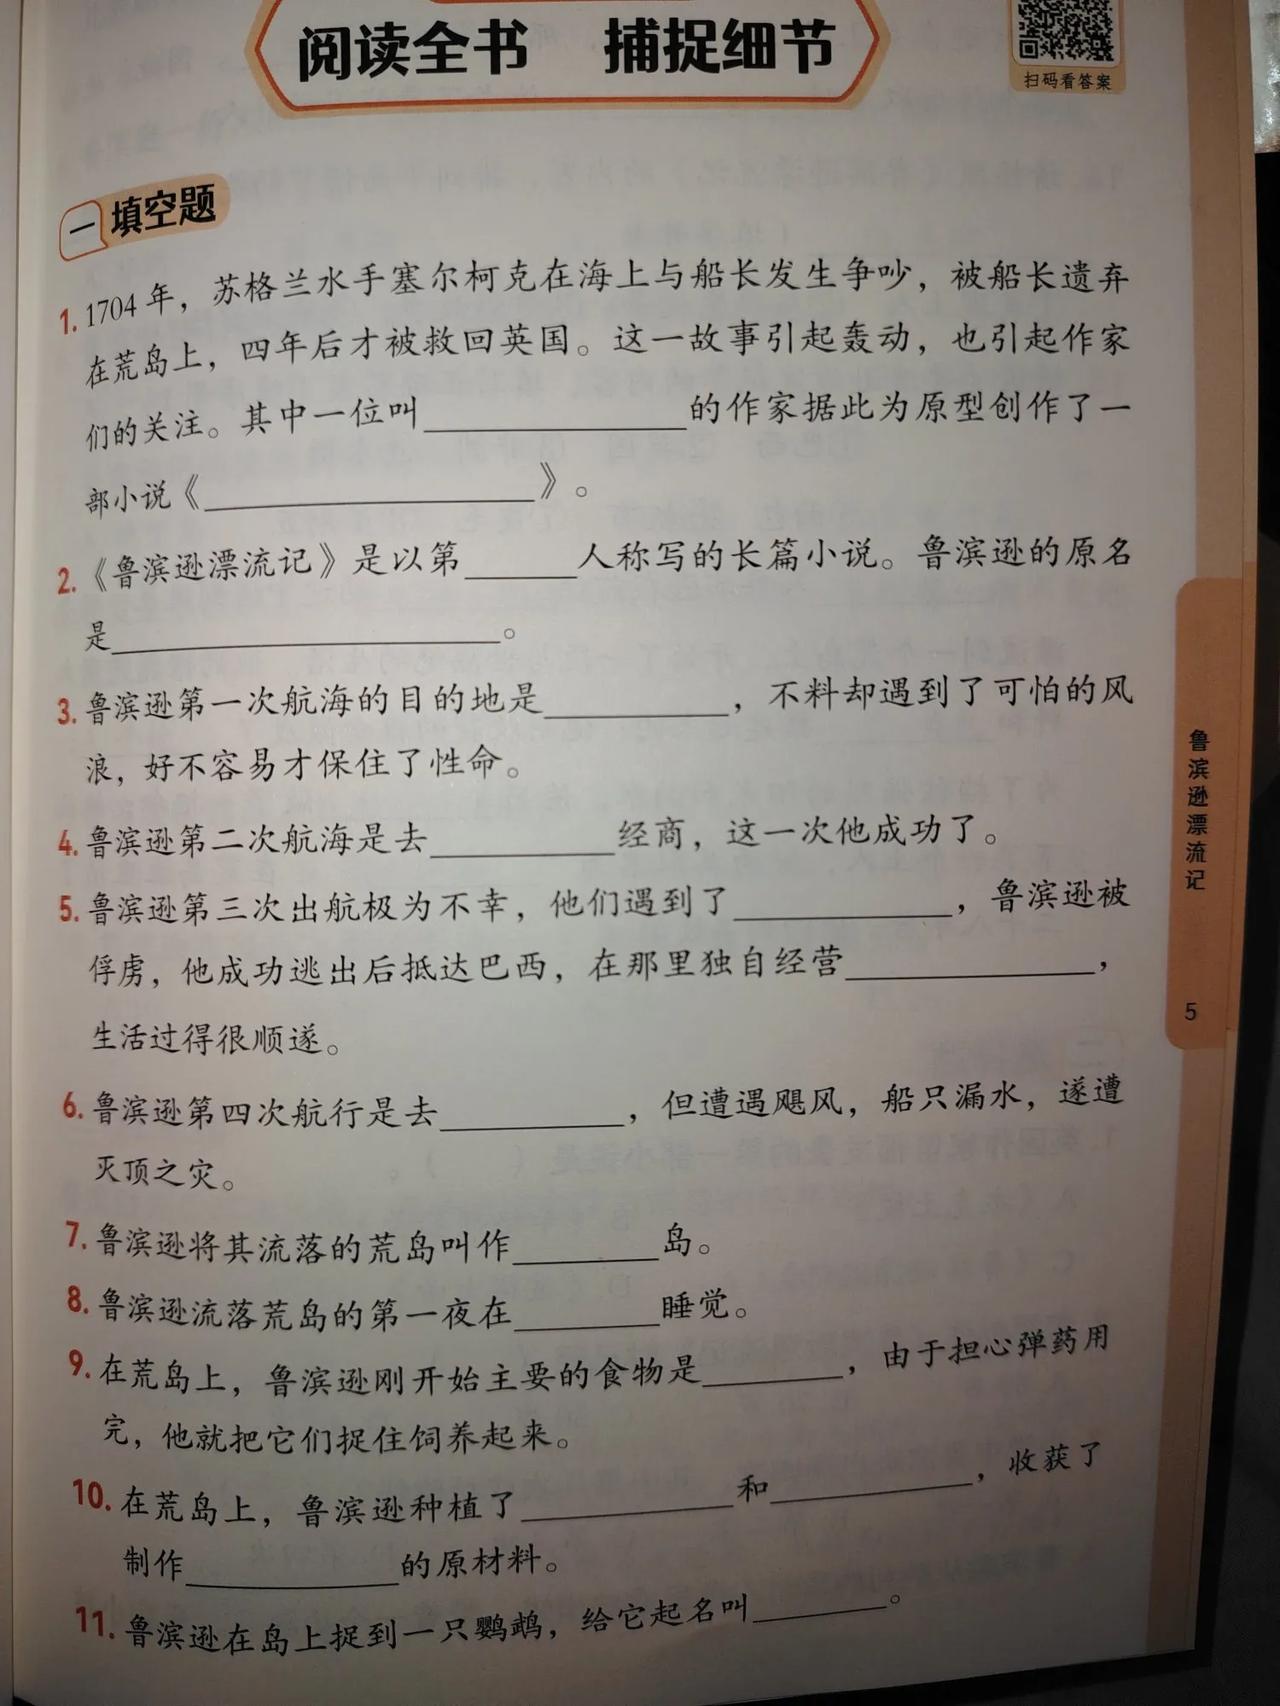 阅读全书 捕捉细节
扫码看答案
一 填空题
1. 1704年，苏格兰水手塞尔柯克在海上与船长发生争吵，被船长遗弃
在荒岛上，四年后才被救回英国。这一故事引起轰动，也引起作家
们的关注。其中一位叫____________的作家据此为原型创作了一
部小说《____________》。
2.《鲁滨逊漂流记》是以第_____人称写的长篇小说。鲁滨逊的原名
是____________。
3. 鲁滨逊第一次航海的目的地是________，不料却遇到了可怕的风
浪，好不容易才保住了性命。
4. 鲁滨逊第二次航海是去________经商，这一次他成功了。
5. 鲁滨逊第三次出航极为不幸，他们遇到了__________，鲁滨逊被
俘虏，他成功逃出后抵达巴西，在那里独自经营__________，
生活过得很顺遂。
6. 鲁滨逊第四次航行是去________，但遭遇飓风，船只漏水，遂遭
灭顶之灾。
7. 鲁滨逊将其流落的荒岛叫作______岛。
8. 鲁滨逊流落荒岛的第一夜在______睡觉。
9. 在荒岛上，鲁滨逊刚开始主要的食物是______，由于担心弹药用
完，他就把它们捉住饲养起来。
10. 在荒岛上，鲁滨逊种植了_________和_________，收获了
制作_________的原材料。
11. 鲁滨逊在岛上捉到一只鹦鹉，给它起名叫______。
鲁滨逊漂流记
5